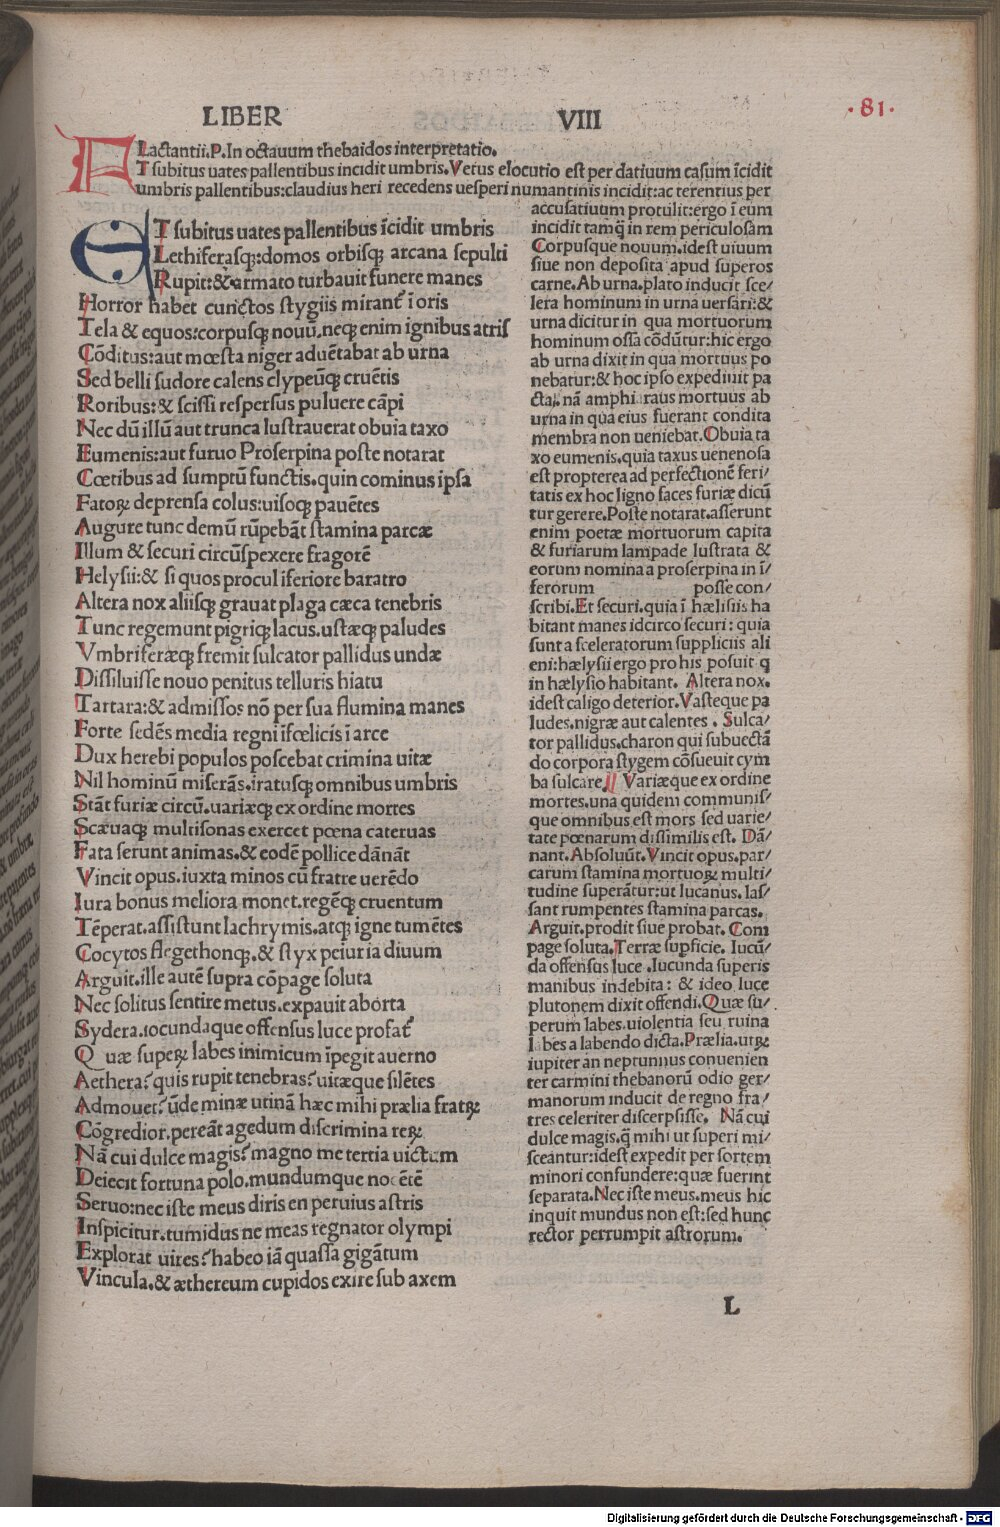 LIBER VIII
·81·
Lactantii.P.In octauum thebaidos interpretatio.
T subitus uates pallentibus incidit umbris.Vetus elocutio est per datiuum casum īcidit
umbris pallentibus:claudius heri recedens uesperi numantinis incidit:ac terentius per
ET subitus uates pallentibus īcidit umbris
Lethiferasꝗ:domos orbisꝗ arcana sepulti
Rupit:& armato turbauit funere manes
Horror habet cunctos stygiis mirant᷑ ī oris
Tela & equos:corpusꝗ nouū.neꝗ enim ignibus atris
Cōditus:aut mœsta niger aduētabat ab urna
Sed belli sudore calens clypeūꝗ cruētis
Roribus:& scissi respersus puluere cāpi
Nec dū illū aut trunca lustrauerat obuia taxo
Eumenis:aut furuo Proserpina poste notarat
Cœtibus ad sumptū functis.quin cominus ipsa
Fatoꝝ deprensa colus:uisoꝗ pauētes
Augure tunc demū rūpebāt stamina parcæ
Illum & securi circūspexere fragorē
Helysii:& si quos procul iferiore baratro
Altera nox aliisꝗ grauat plaga cæca tenebris
Tunc regemunt pigriꝗ lacus.ustæꝗ paludes
Vmbriferæꝗ fremit sulcator pallidus undæ
Dissiluisse nouo penitus telluris hiatu
Tartara:& admissos nō per sua flumina manes
Forte sedēs media regni īfœlicis ī arce
Dux herebi populos poscebat crimina uitæ
Nil hominū miserās.iratusꝗ omnibus umbris
Stāt furiæ circū.uariæꝗ ex ordine mortes
Scæuaꝗ multisonas exercet pœna cateruas
Fata ferunt animas.& eodē pollice dānāt
Vincit opus.iuxta minos cū fratre uerēdo
Iura bonus meliora monet.regēꝗ cruentum
Tēperat.assistunt lachrymis.atꝗ igne tumētes
Cocytos flegethonꝗ.& styx peiuria diuum
Arguit.ille autē supra cōpage soluta
Nec solitus sentire metus.expauit aborta
Sydera.iocundaque offensus luce profat᷑
Quæ supeꝝ labes inimicum īpegit auerno
Aethera?quis rupit tenebras?uitæque silētes
Admouet?ūde minæ utinā hæc mihi prælia fratꝝ
Cōgredior.pereāt agedum discrimina reꝝ
Nā cui dulce magis?magno me tertia uictum
Deiecit fortuna polo.mundumque nocētē
Seruo:nec iste meus diris en peruius astris
Inspicitur.tumidus ne meas regnator olympi
Explorat uires?habeo iā quassa gigātum
Vincula.& æthereum cupidos exire sub axem
accusatiuum protulit:ergo ī eum
incidit tamq̄ in rem periculosam
Corpusque nouum.idest uiuum
siue non deposita apud superos
carne.Ab urna.plato inducit sce/
lera hominum in urna uersari:&
urna dicitur in qua mortuorum
hominum ossa cōdūtur:hic ergo
ab urna dixit in qua mortuus po
nebatur:& hoc ipso expediuit pa
cta.nā amphiaraus mortuus ab
urna in qua eius fuerant condita
membra non ueniebat.Obuia ta
xo eumenis.quia taxus uenenosa
est propterea ad perfectionē feri/
tatis ex hoc ligno faces furiæ dicū
tur gerere.Poste notarat.asserunt
enim poetæ mortuorum capita
& furiarum lampade lustrata &
eorum nomina a proserpina in ī/
ferorum posse con/
scribi.Et securi.quia ī hælisiis ha
bitant manes idcirco securi: quia
sunt a sceleratorum suppliciis ali
eni:hælysii ergo pro his posuit q
in hælysio habitant. Altera nox.
idest caligo deterior.Vasteque pa
ludes.nigræ aut calentes . Sulca/
tor pallidus.charon qui subuectā
do corpora stygem cōsueuit cym
ba sulcare. Variæque ex ordine
mortes.una quidem communis/
que omnibus est mors sed uarie/
tate pœnarum dissimilis est. Dā/
nant.Absoluūt.Vincit opus.par/
carum stamina mortuoꝝ multi/
tudine superātur:ut lucanus.las/
sant rumpentes stamina parcas.
Arguit.prodit siue probat. Com
page soluta.Terræ supficie. Iucū/
da offensus luce .Iucunda superis
manibus indebita: & ideo luce
plutonem dixit offendi.Quæ su/
perum labes.uiolentia seu ruina
labes a labendo dicta.Prælia.utꝝ
iupiter an neptunnus conuenien
ter carmini thebanorū odio ger/
manorum inducit de regno fra/
tres celeriter discerpsisse. Nā cui
dulce magis.q̄ mihi ut superi mi/
sceantur:idest expedit per sortem
minori confundere:quæ fuerint
separata.Nec iste meus.meus hic
inquit mundus non est:sed hunc
rector perrumpit astrorum.
L
Digitalisierung gefördert durch die Deutsche Forschungsgemeinschaft - DFG